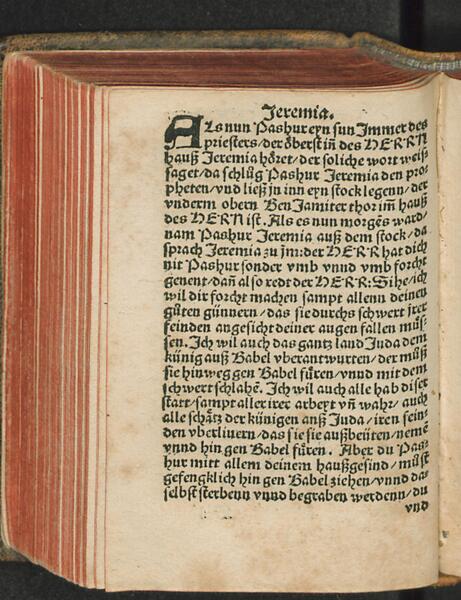 Jeremia.
Als nun Pashur eyn sun Immer des
priesters/der öberst iñ des HERRN
hauß Jeremia höret/der soliche wort weis-
saget/da schlůg Pashur Jeremia den pro-
pheten/vnd ließ jn inn eyn stock legenn/der
vnderm obern BenJamiter thor im̃ hauß
des HERN ist. Als es nun morgẽs ward/
nam Pashur Jeremia auß dem stock/da
sprach Jeremia zu jm: der HERR hat dich
nit Pashur sonder vmb vnnd vmb forcht
genent/dañ also redt der HERR: Sihe/ich
wil dir forcht machen sampt allenn deinen
gůten günnern/das sie durchs schwert jrer
feinden angesicht deiner augen fallen müs-
sen. Ich wil auch das gantz land Juda dem
künig auß Babel vberantwurten/der můß
sie hinweg gen Babel fůren/vnnd mit dem
schwert schlahẽ. Ich wil auch alle hab diser
statt/sampt aller irer arbeyt vñ wahr/auch
alle schätz der künigen auß Juda/iren fein-
den vberliuern/das sie sie außbeüten/nemẽ
vnnd hin gen Babel fůren. Aber du Pas-
hur mitt allem deinem haußgesind/můst
gefengklich hin gen Babel ziehen/vnnd da-
selbst sterbenn vnnd begraben werdenn/du
vnd